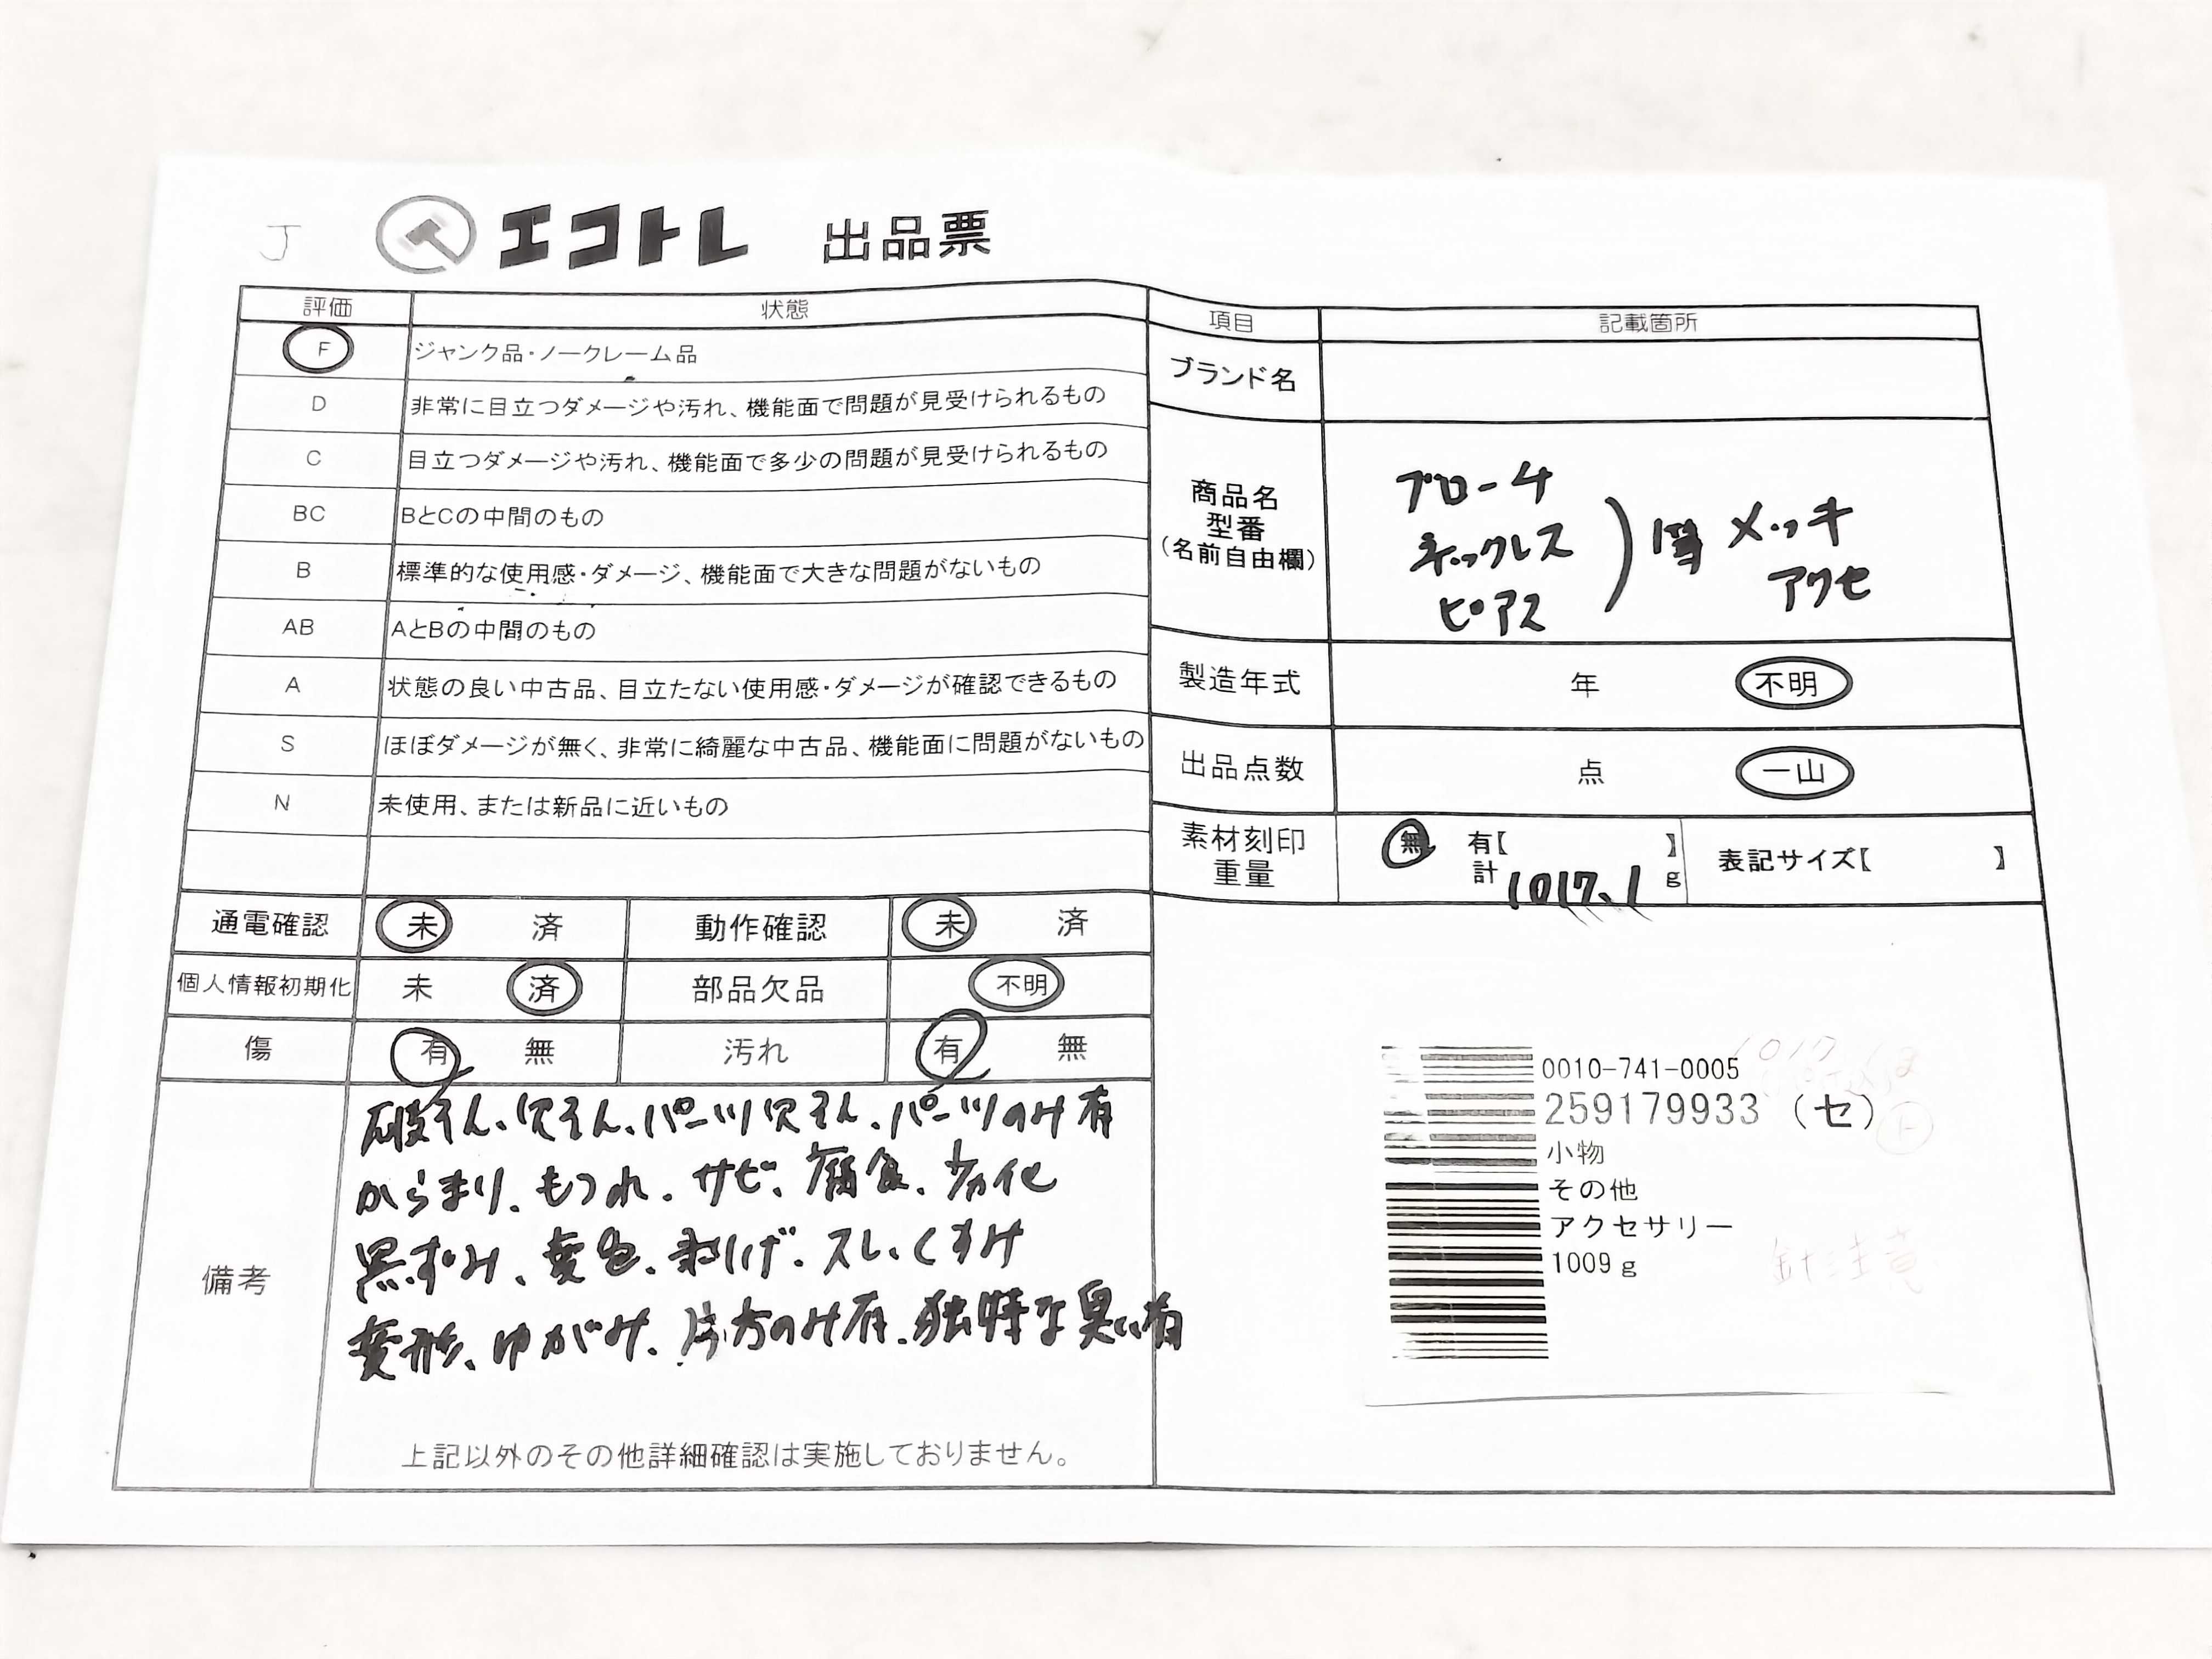 J エコトレ 出品票
評価 状態
F ジャンク品・ノークレーム品
D 非常に目立つダメージや汚れ、機能面で問題が見受けられるもの
C 目立つダメージや汚れ、機能面で多少の問題が見受けられるもの
BC BとCの中間のもの
B 標準的な使用感・ダメージ、機能面で大きな問題がないもの
AB AとBの中間のもの
A 状態の良い中古品、目立たない使用感・ダメージが確認できるもの
S ほぼダメージが無く、非常に綺麗な中古品、機能面に問題がないもの
N 未使用、または新品に近いもの
通電確認 未 済 動作確認 未 済
個人情報初期化 未 済 部品欠品 不明
傷 有 無 汚れ 有 無
備考
破そん、欠そん、パーツ欠そん、パーツのみ有
からまり、もつれ、サビ、腐食、劣化
黒ずみ、変色、剥げ、スレ、くすみ
変形、ゆがみ、片方のみ有、独特な臭い有
上記以外のその他詳細確認は実施しておりません。
項目 記載箇所
ブランド名
商品名
型番
(名前自由欄)
ブローチ
ネックレス
ピアス
)等 メッキ
アクセ
製造年式 年 不明
出品点数 点 一山
素材刻印
重量
無 有【 】
計 1017.1 g
表記サイズ【 】
0010-741-0005
259179933 (セ)
小物
その他
アクセサリー
1009g